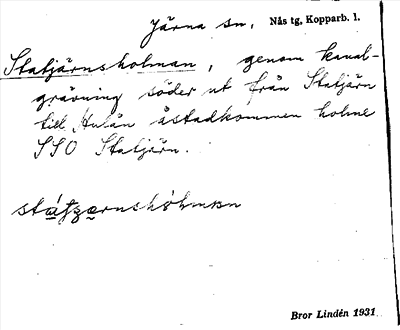 Järna sn. Nås tg, Kopparb. l.
Statjärnsholman, genom kanal-
grävning söder ut från Statjärn
till Hulån åstadkommen holme
SSO Statjärn.
Bror Lindén 1931